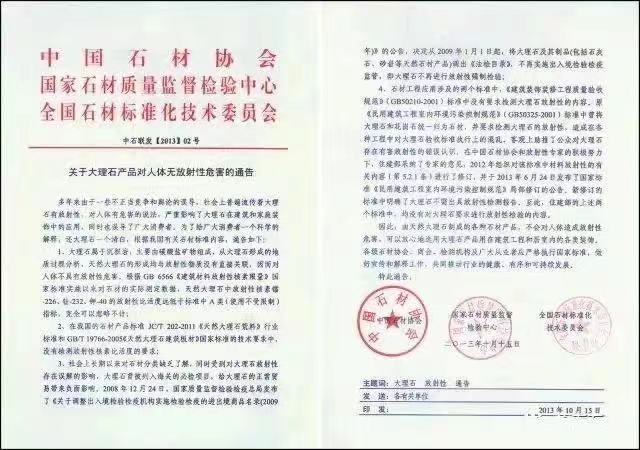 中国石材协会
国家石材质量监督检验中心
全国石材标准化技术委员会
中石联发【2013】02号
关于大理石产品对人体无放射性危害的通告
多年来由于一些不正当竞争和舆论的误导，社会上普遍流传着大理
石有放射性，对人体有危害的说法，严重影响了大理石在建筑和家庭装
饰中的应用，同时也误导了广大消费者。为了给广大消费者一个科学的
解释，还大理石一个清白，根据我国有关石材标准内容，通告如下：
1、大理石属于沉积岩，主要由碳酸盐矿物组成，从大理石形成的地
质过程分析，天然大理石的形成均与放射性物质没有直接关联，因而对
人体不具有放射性危害。根据 GB 6566《建筑材料放射性核素限量》国家
标准实施以来对石材的实际测定数据，天然大理石中放射性核素镭
-226、钍-232、钾-40的放射性比活度远低于标准中A类（使用不受限制）
指标，完全可以忽略不计；
2、在我国的石材产品标准 JC/T 202-2011《天然大理石荒料》行业
标准和GB/T 19766-2005《天然大理石建筑板材》国家标准的技术要求中，
没有检测放射性核素比活度的要求；
3、社会上长期以来对石材分类缺乏了解，同时受到对大理石放射性
存在误解的影响，大理石曾被列入海关的必检项目，给大理石的正常贸
易带来负面影响。2008年12月24日，国家质量监督检验检疫总局发布
了《关于调整出入境检验检疫机构实施检验检疫的进出境商品名录(2009
年)》的公告，决定从2009年1月1日起，将大理石及其制品(包括石灰
石、砂岩等天然石材产品)调出《法检目录》，不再实施出入境检验检疫
监管，即大理石不再进行放射性强制检验；
4、石材工程应用涉及的两个标准中，《建筑装饰装修工程质量验收
规范》(GB50210-2001)标准中没有要求检测大理石放射性的内容。原
《民用建筑工程室内环境污染控制规范》(GB50325-2001)标准中曾将
大理石和花岗石统一归为石材，并要求检测大理石的放射性，造成在各
种工程中对大理石检验标准执行上的混乱，客观上助推了公众对大理石
存在有害放射性的错误认识。在中国石材协会和放射性专家的积极努力
下，住建部采纳了专家的意见，2012年组织对该标准中材料放射性的有
关内容（第5.2.1条）进行了修订，并于2013年6月24日发布了国家标
准《民用建筑工程室内环境污染控制规范》局部修订的公告。新修订的
标准中明确了大理石不需出具放射性检测报告。至此，住建部的上述两
个标准中，均没有对大理石要求进行放射性检测的内容。
因此，由天然大理石制成的各种石材产品，不会对人体造成放射性
危害，可以放心地选用大理石产品用在建筑工程和居室内的各类装饰。
各级石材协会、商会、检测机构及广大从业者应严格执行国家标准，做
好宣传和解释工作，共同推动行业的健康、有序和可持续发展。
特此通告。
中国石材协会 国家石材质量监督 全国石材标准化
检验中心 技术委员会
二〇一三年十月十五日
主题词：大理石 放射性 通告
发 送：各有关单位
印 发： 2013年10月15日